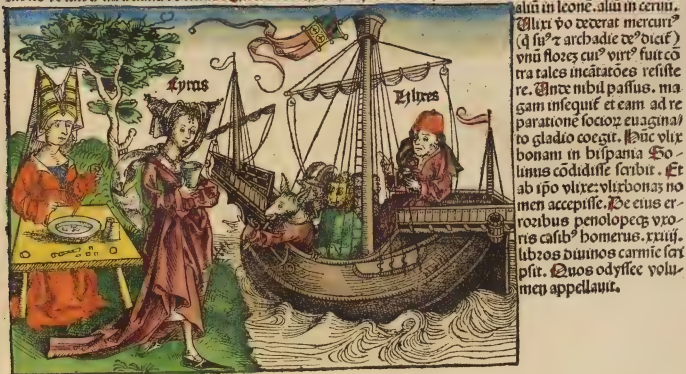 aliū in leone. aliū in ceruū.
Ulixi ṽo dederat mercuri⁹
(q̄ su⁹ t̄ archadie de⁹ dicit̄)
vnū florez cui⁹ virt⁹ fuit cō
tra tales incātatōes resiste
re. Unde nihil passus. ma
gam insequit̄ et eam ad re
parationē socioꝝ euagina/
to gladio coegit. Hūc vlix
bonam in hispania So-
linus cōdidisse scribit. Et
ab ip̄o vlixe: vlixbonaz no
men accepisse. De eius er-
roribus penolopeqꝫ vxo-
ris casib⁹ homerus. xxiiij.
libros diuinos carmīe scri
psit. Quos odyssee volu-
men appellauit.
Cyrtes
Vlixes